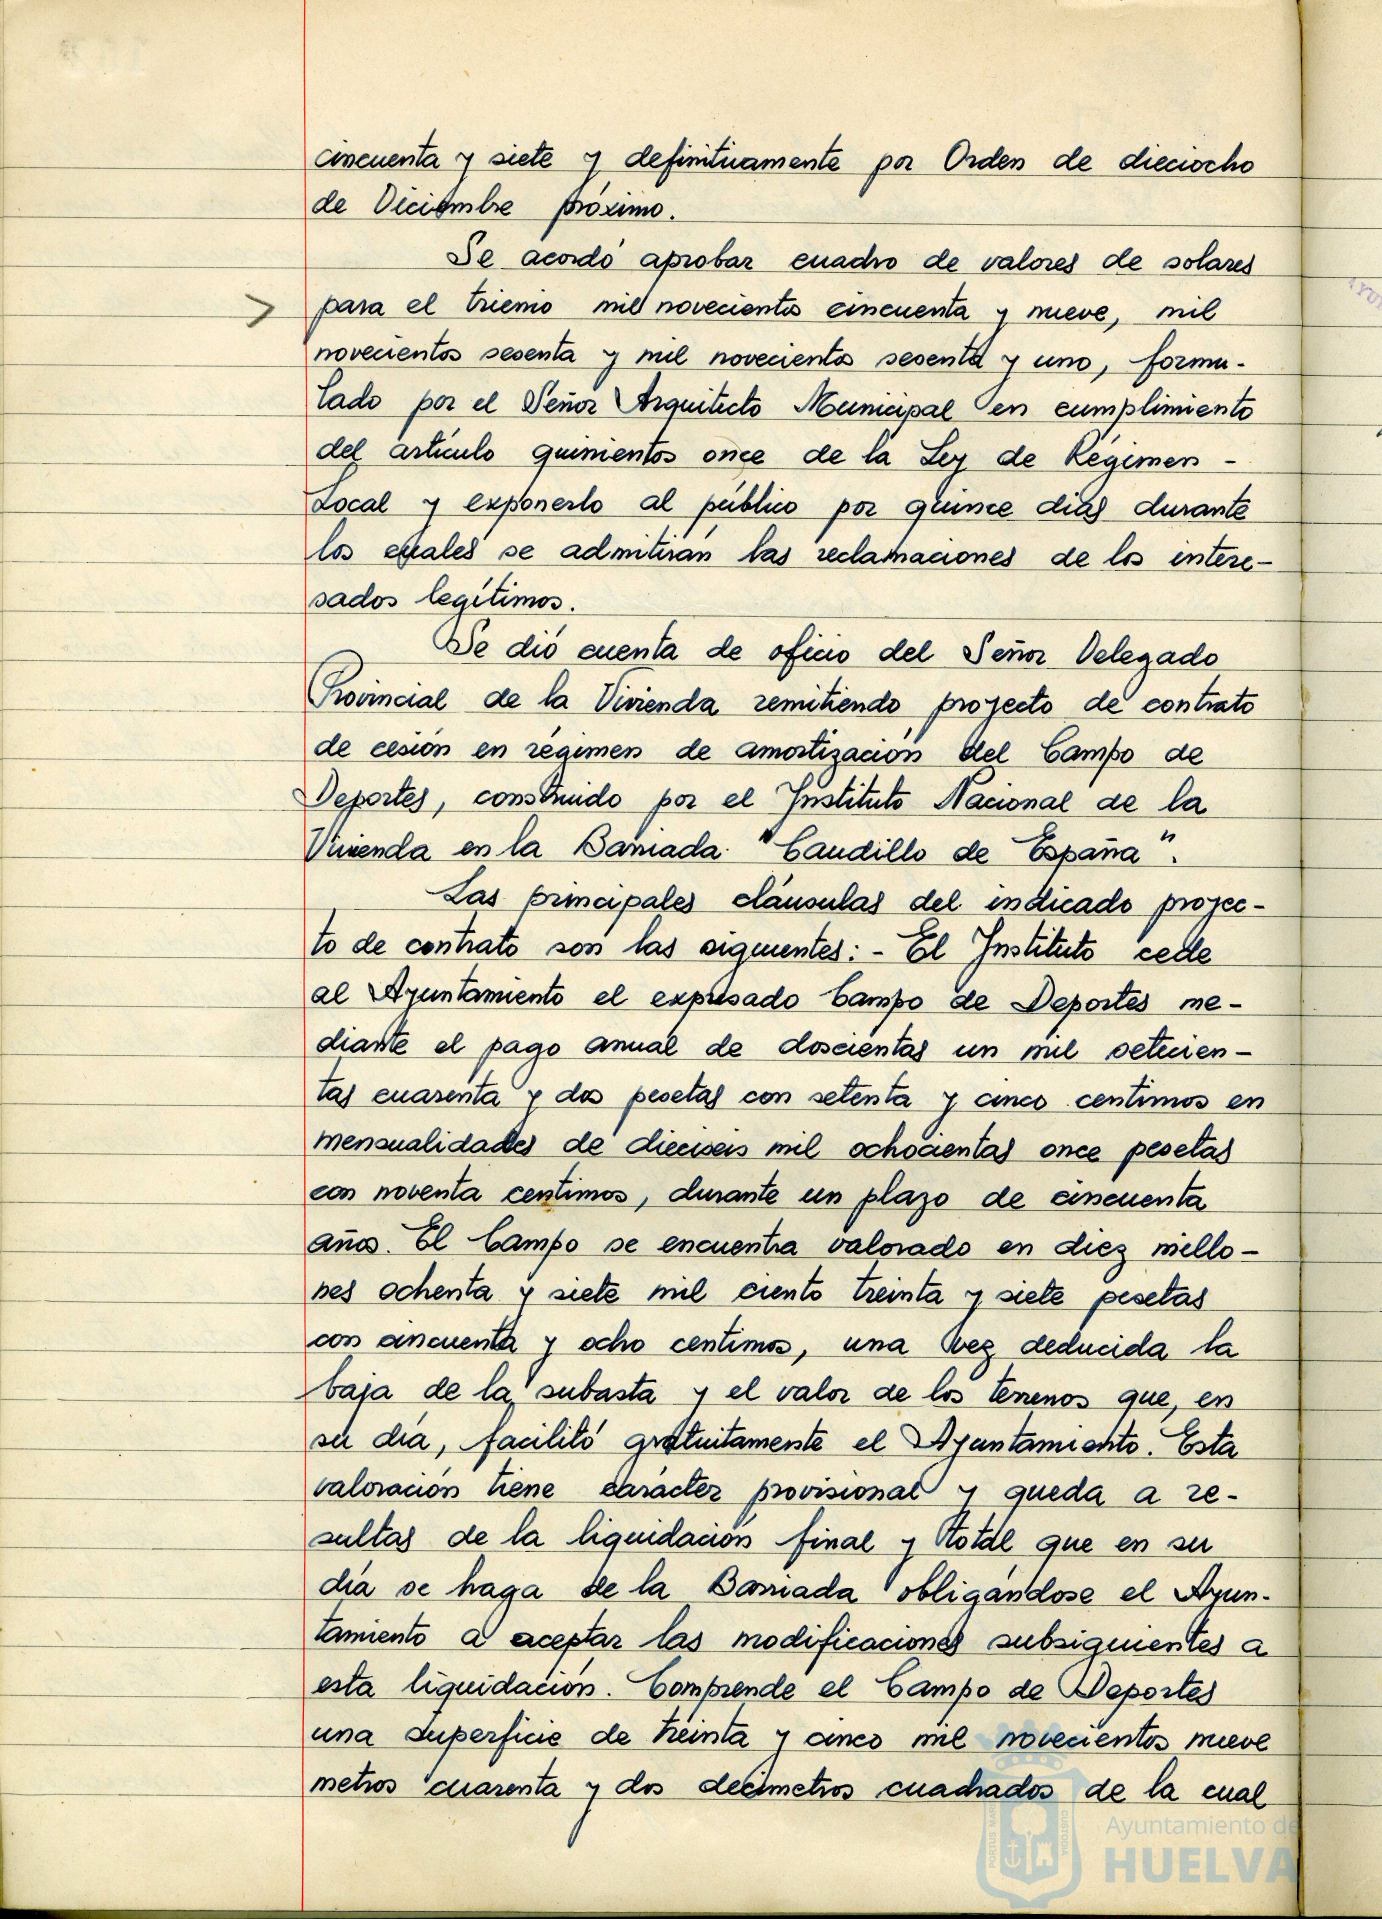 cincuenta y siete y definitivamente por Orden de dieciocho
de Diciembre próximo.
Se acordó aprobar cuadro de valores de solares
para el trienio mil novecientos cincuenta y nueve, mil
novecientos sesenta y mil novecientos sesenta y uno, formu-
lado por el Señor Arquitecto Municipal en cumplimiento
del artículo quinientos once de la Ley de Régimen -
Local y exponerlo al público por quince días durante
los cuales se admitirán las reclamaciones de los intere-
sados legítimos.
Se dió cuenta de oficio del Señor Delegado
Provincial de la Vivienda remitiendo proyecto de contrato
de cesión en régimen de amortización del Campo de
Deportes, construido por el Instituto Nacional de la
Vivienda en la Barriada "Caudillo de España".
Las principales cláusulas del indicado proyec-
to de contrato son las siguientes: - El Instituto cede
al Ayuntamiento el expresado Campo de Deportes me-
diante el pago anual de doscientas un mil setecien-
tas cuarenta y dos pesetas con setenta y cinco centimos en
mensualidades de dieciseis mil ochocientas once pesetas
con noventa centimos, durante un plazo de cincuenta
años. El Campo se encuentra valorado en diez millo-
nes ochenta y siete mil ciento treinta y siete pesetas
con cincuenta y ocho centimos, una vez deducida la
baja de la subasta y el valor de los terrenos que, en
su día, facilitó gratuitamente el Ayuntamiento. Esta
valoración tiene carácter provisional y queda a re-
sultas de la liquidación final y total que en su
día se haga de la Barriada obligándose el Ayun-
tamiento a aceptar las modificaciones subsiguientes a
esta liquidación. Comprende el Campo de Deportes
una superficie de treinta y cinco mil novecientos nueve
metros cuarenta y dos decímetros cuadrados de la cual
Ayuntamiento de
HUELVA